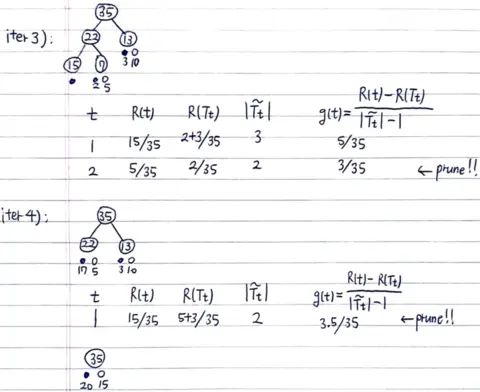 35
iter 3):
22 13
● ○
3 10
15 7
● ● ○
2 5
t R(t) R(Tt) |T̃t| g(t)= R(t)-R(Tt) / |T̃t|-1
1 15/35 2+3/35 3 5/35
2 5/35 2/35 2 3/35 ← prune!!
iter 4):
35
22 13
● ○ ● ○
17 5 3 10
t R(t) R(Tt) |T̃t| g(t)= R(t)-R(Tt) / |T̃t|-1
1 15/35 5+3/35 2 3.5/35 ← prune!!
35
● ○
20 15